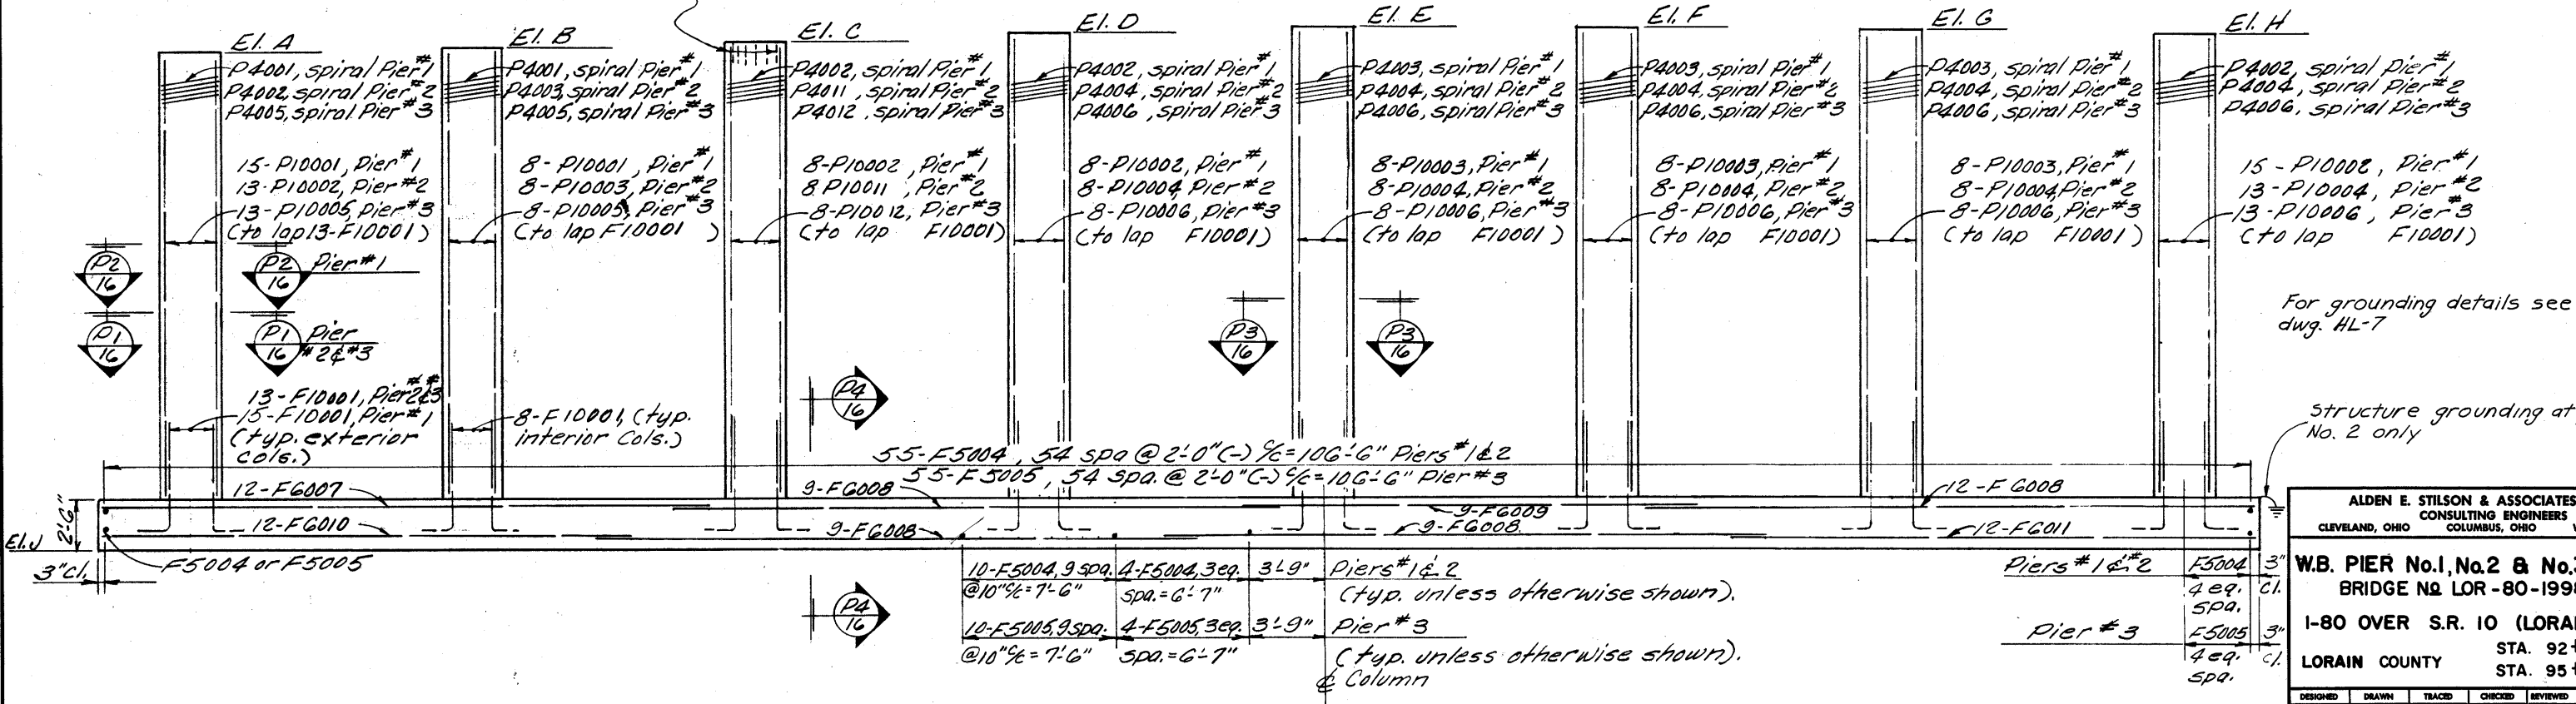 El. A
P4001, spiral Pier #1
P4002, spiral Pier #2
P4005, spiral Pier #3
15-P10001, Pier #1
13-P10002, Pier #2
13-P10005, Pier #3
(to lap 13-F10001)
El. B
P4001, spiral Pier #1
P4003, spiral Pier #2
P4005, spiral Pier #3
8-P10001, Pier #1
8-P10003, Pier #2
8-P10005, Pier #3
(to lap F10001 )
El. C
P4002, spiral Pier #1
P4011 , spiral Pier #2
P4012 , spiral Pier #3
8-P10002 , Pier #1
8 P10011 , Pier #2
8-P10012, Pier #3
(to lap F10001)
El. D
P4002, spiral Pier #1
P4004, spiral Pier #2
P4006 , spiral Pier #3
8-P10002, Pier #1
8-P10004, Pier #2
8-P10006, Pier #3
(to lap F10001)
El. E
P4003, spiral Pier #1
P4004, spiral Pier #2
P4006, spiral Pier #3
8-P10003, Pier #1
8-P10004, Pier #2
8-P10006, Pier #3
(to lap F10001)
El. F
P4003, spiral Pier #1
P4004, spiral Pier #2
P4006, spiral Pier #3
8-P10003, Pier #1
8-P10004, Pier #2
8-P10006, Pier #3
(to lap F10001)
El. G
P4003, spiral Pier #1
P4004, spiral Pier #2
P4006, spiral Pier #3
8-P10003, Pier #1
8-P10004, Pier #2
8-P10006, Pier #3
(to lap F10001)
El. H
P4002, spiral Pier #1
P4004, spiral Pier #2
P4006, spiral Pier #3
15-P10002, Pier #1
13-P10004, Pier #2
13-P10006 , Pier #3
(to lap F10001)
P2
16
P2
16
Pier #1
P1
16
P1
16
Pier
#2 & #3
P3
16
P3
16
P4
16
For grounding details see
dwg. HL-7
13-F10001, Pier #2&#3
15-F10001, Pier #1
(typ. exterior
cols.)
8-F10001, (typ.
interior Cols.)
Structure grounding at
No. 2 only
55-F5004, 54 spa @ 2'-0"(-) c/c = 106'-6" Piers #1 & 2
55-F5005, 54 spa. @ 2'-0"(-) c/c = 106'-6" Pier #3
12-F6007
9-F6008
9-F6009
12-F6008
12-F6010
9-F6008
9-F6008
12-F6011
2'-6"
El. J
3" cl.
F5004 or F5005
10-F5004, 9 spa.
@10" c/c = 7'-6"
4-F5004, 3 eq.
spa. = 6'-7"
3'-9"
Piers #1 & 2
(typ. unless otherwise shown).
10-F5005, 9 spa.
@10" c/c = 7'-6"
4-F5005, 3 eq.
spa. = 6'-7"
3'-9"
Pier #3
(typ. unless otherwise shown).
℄ Column
P4
16
Piers #1 & #2
F5004
4 eq.
spa.
3"
cl.
Pier #3
F5005
4 eq.
spa.
3"
cl.
ALDEN E. STILSON & ASSOCIATES
CONSULTING ENGINEERS
CLEVELAND, OHIO COLUMBUS, OHIO
W.B. PIER No.1, No.2 & No.3
BRIDGE No LOR-80-1998
I-80 OVER S.R. 10 (LORAI
LORAIN COUNTY
STA. 92+
STA. 95+
DESIGNED DRAWN TRACED CHECKED REVIEWED